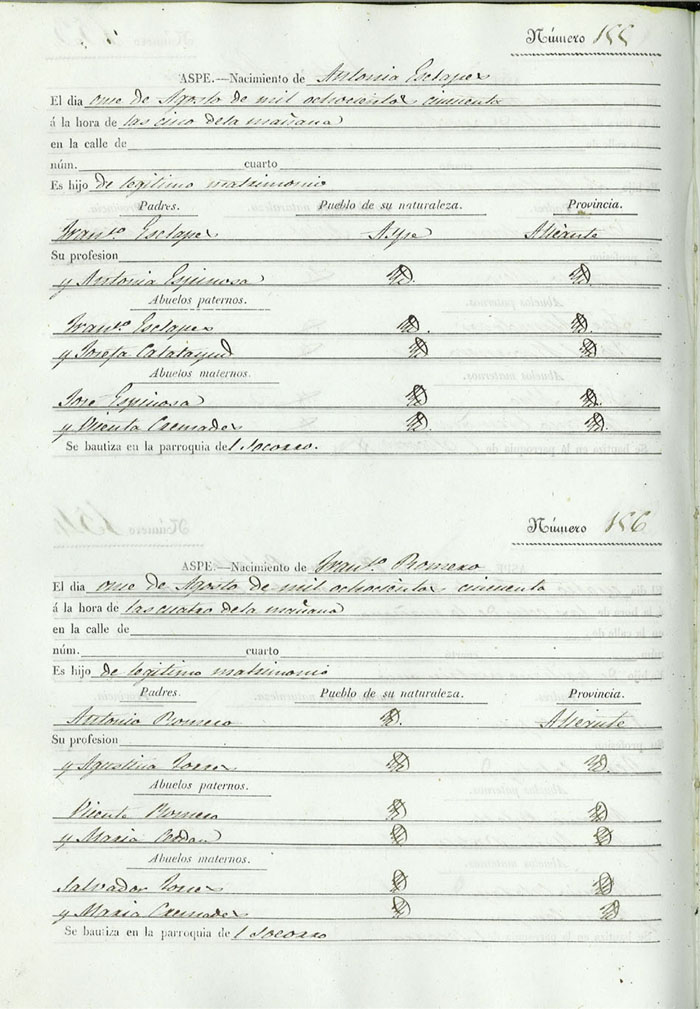 Número 155
ASPE.—Nacimiento de Antonia Esclapes
El dia once de Agosto de mil ochocientos cincuenta
á la hora de las cinco de la mañana
en la calle de
núm. cuarto
Es hijo de legitimo matrimonio
Padres. Pueblo de su naturaleza. Provincia.
Franco. Esclapes Aspe Alicante
Su profesion
y Antonia Espinosa
Abuelos paternos.
Franco. Esclapes
y Josefa Calatayud
Abuelos maternos.
Jose Espinosa
y Vicenta Cremades
Se bautiza en la parroquia del Socorro.
Número 156
ASPE.—Nacimiento de Franca. Romero
El dia once de Agosto de mil ochocientos cincuenta
á la hora de las cuatro de la mañana
en la calle de
núm. cuarto
Es hijo de legitimo matrimonio
Padres. Pueblo de su naturaleza. Provincia.
Antonio Romero Alicante
Su profesion
y Agustina Torres
Abuelos paternos.
Vicente Romero
y Maria
Abuelos maternos.
Salvador Torres
y Maria Cremades
Se bautiza en la parroquia del Socorro